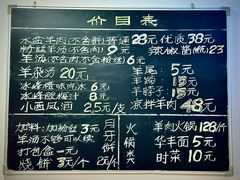 价目表
水盆羊肉(不含饼)普通28元 优质38元
粉丝羊汤(不含肉)9元 辣椒酱
羊汤(不含肉不含粉丝)6元
羊杂汤20元 羊尾:5元
冰峰 羊蹄:15元
冰峰酸梅汤8元 羊脖子:15元
小西凤酒 25元/支 凉拌羊肉48元
加料:加粉丝3元
羊汤不可以续
打包盒一元
烧饼3元/个
月牙饼
元/个
火锅类
羊肉火锅128/件
华丰面5元
时菜10元